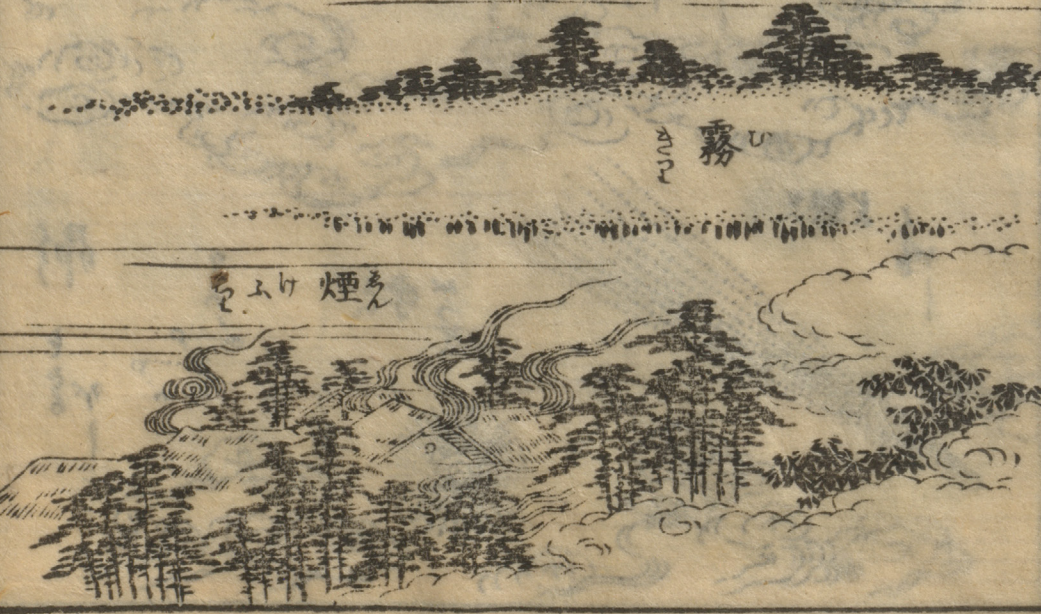 霧
きり
煙
えん
けふ